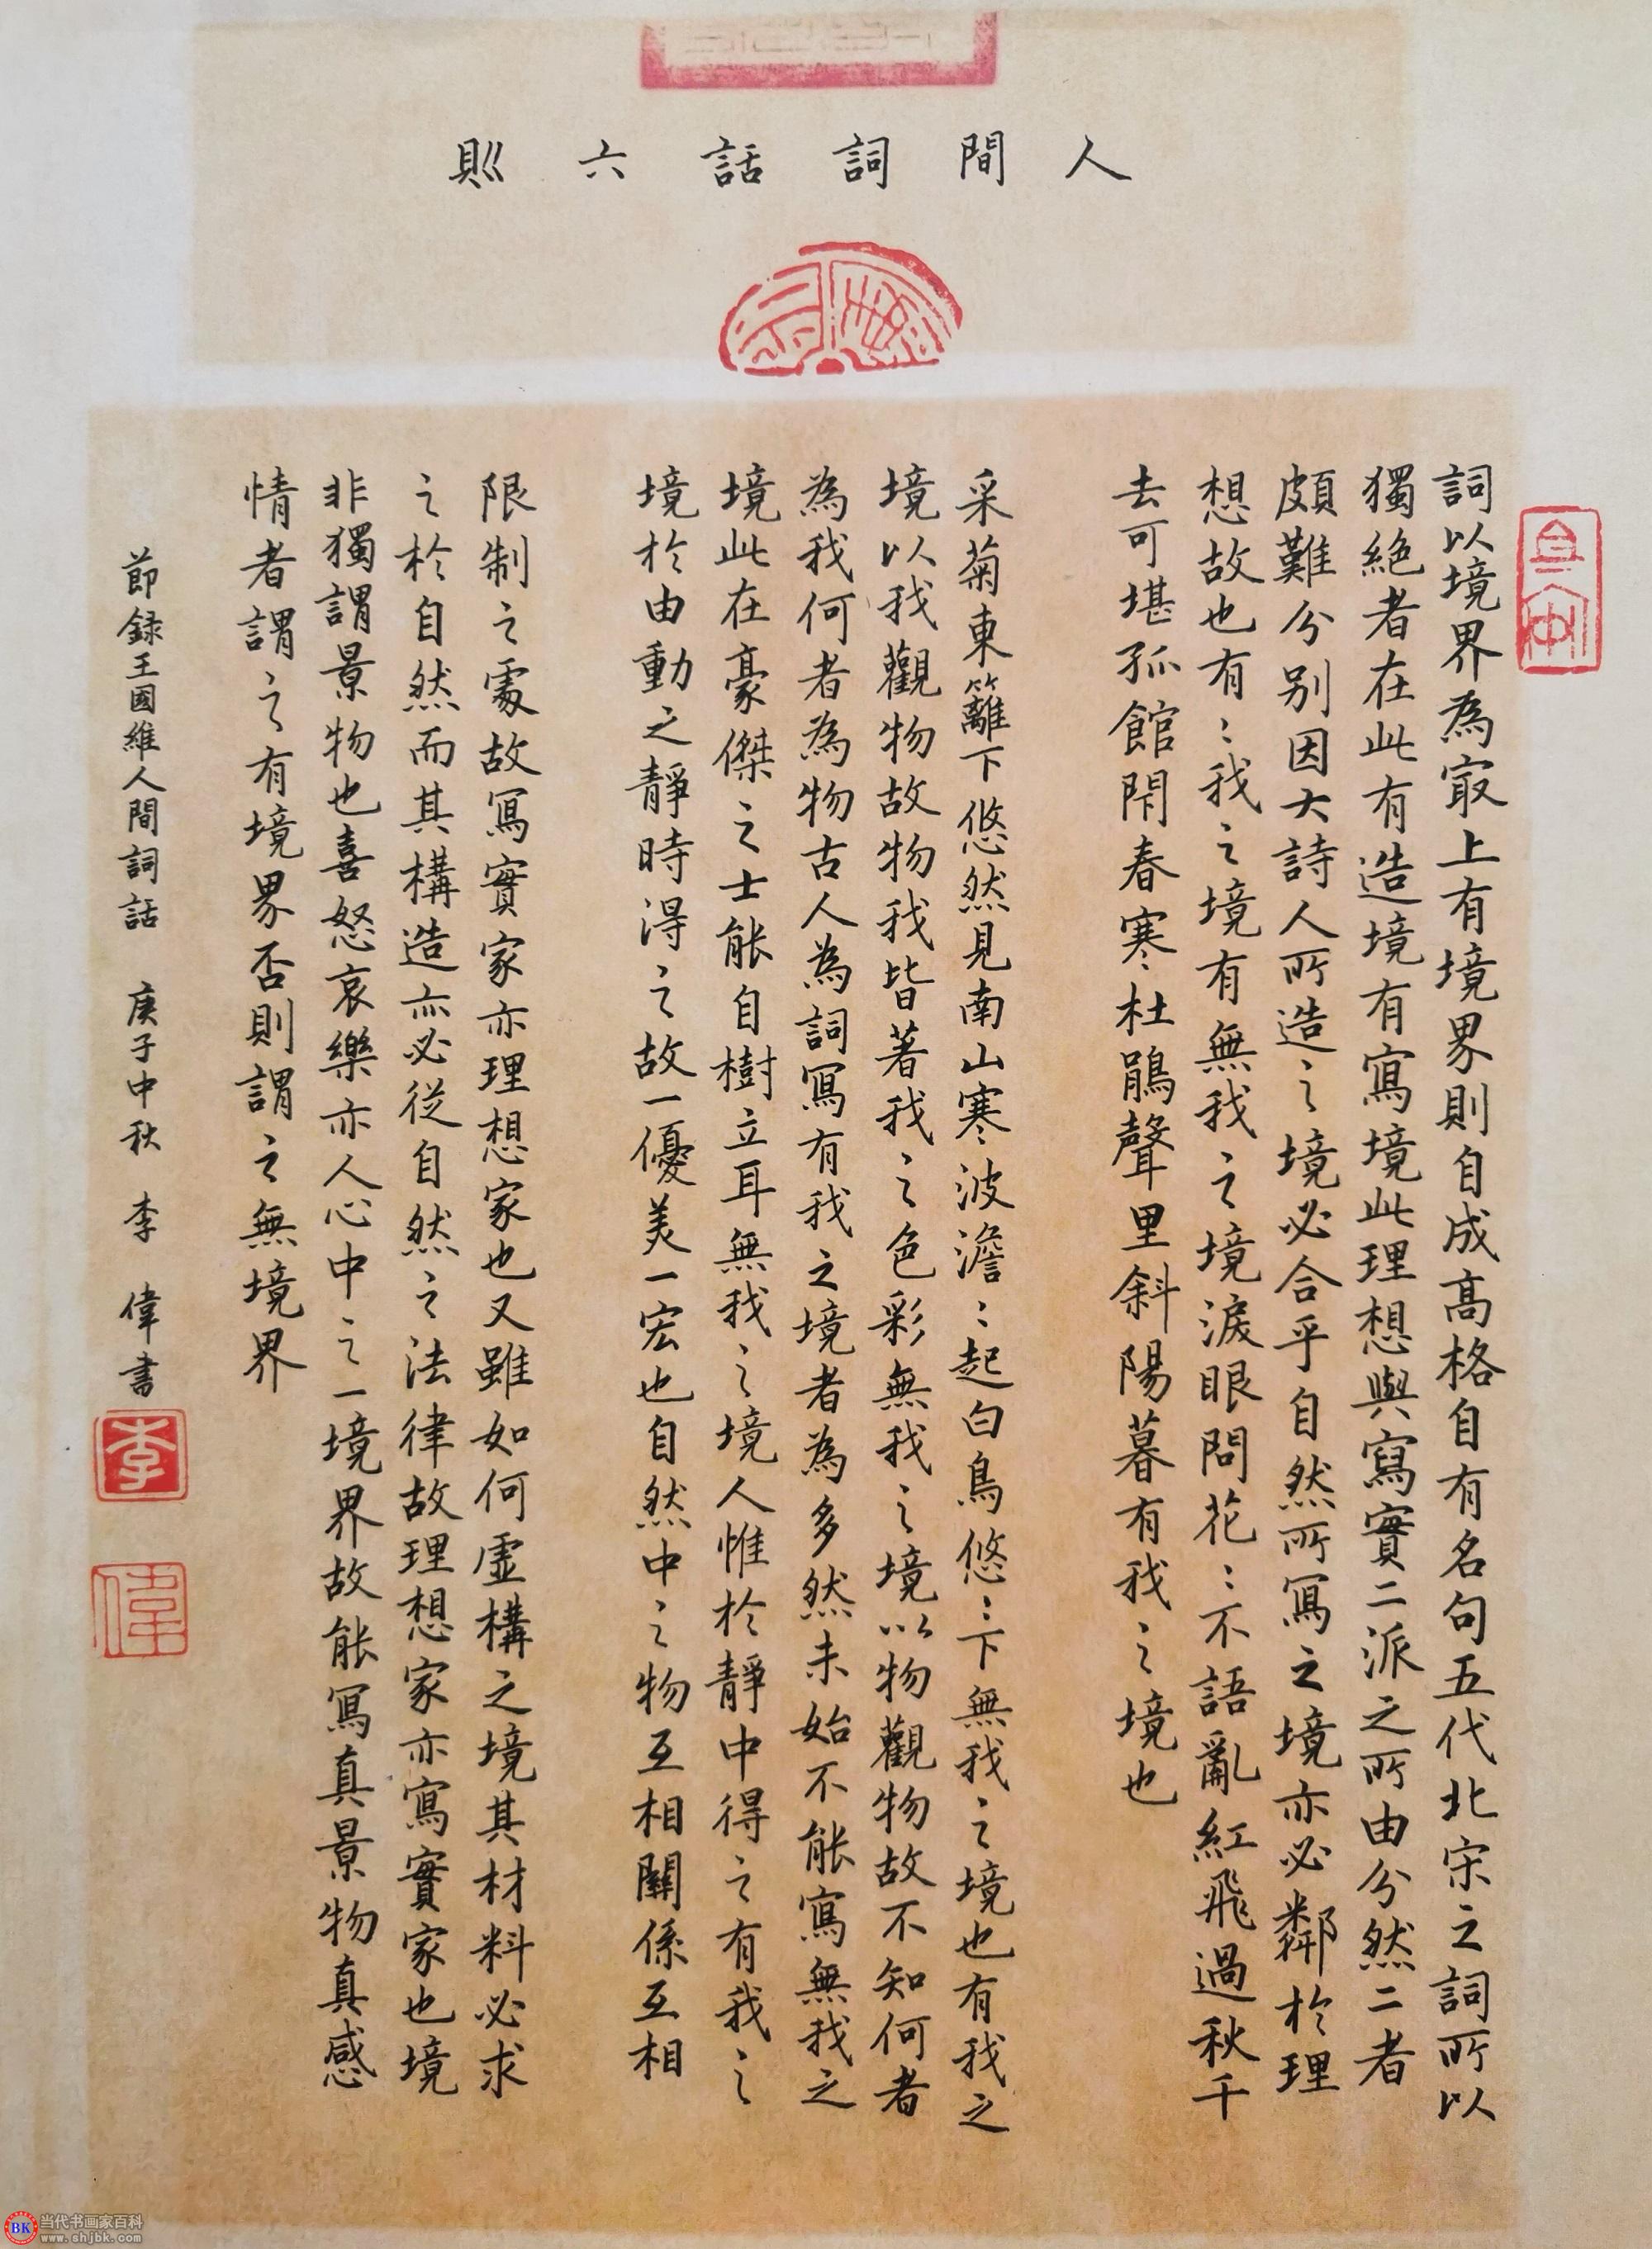 人間詞話六則
詞以境界為最上有境界則自成高格自有名句五代北宋之詞所以
獨絕者在此有造境有寫境此理想與寫實二派之所由分然二者
頗難分別因大詩人所造之境必合乎自然所寫之境亦必鄰於理
想故也有〻我之境有無我之境淚眼問花〻不語亂紅飛過秋千
去可堪孤館閇春寒杜鵑聲里斜陽暮有我之境也
采菊東籬下悠然見南山寒波澹〻起白鳥悠〻下無我之境也有我之
境以我觀物故物我皆著我之色彩無我之境以物觀物故不知何者
為我何者為物古人為詞寫有我之境者為多然未始不能寫無我之
境此在豪傑之士能自樹立耳無我之境人惟於靜中得之有我之
境於由動之靜時得之故一優美一宏也自然中之物互相關係互相
限制之處故寫實家亦理想家也又雖如何虛構之境其材料必求
之於自然而其構造亦必從自然之法律故理想家亦寫實家也境
非獨謂景物也喜怒哀樂亦人心中之一境界故能寫真景物真感
情者謂之有境界否則謂之無境界
節録王國維人間詞話 庚子中秋 李偉書
李
偉
BK 当代书画家百科
www.shjbk.com